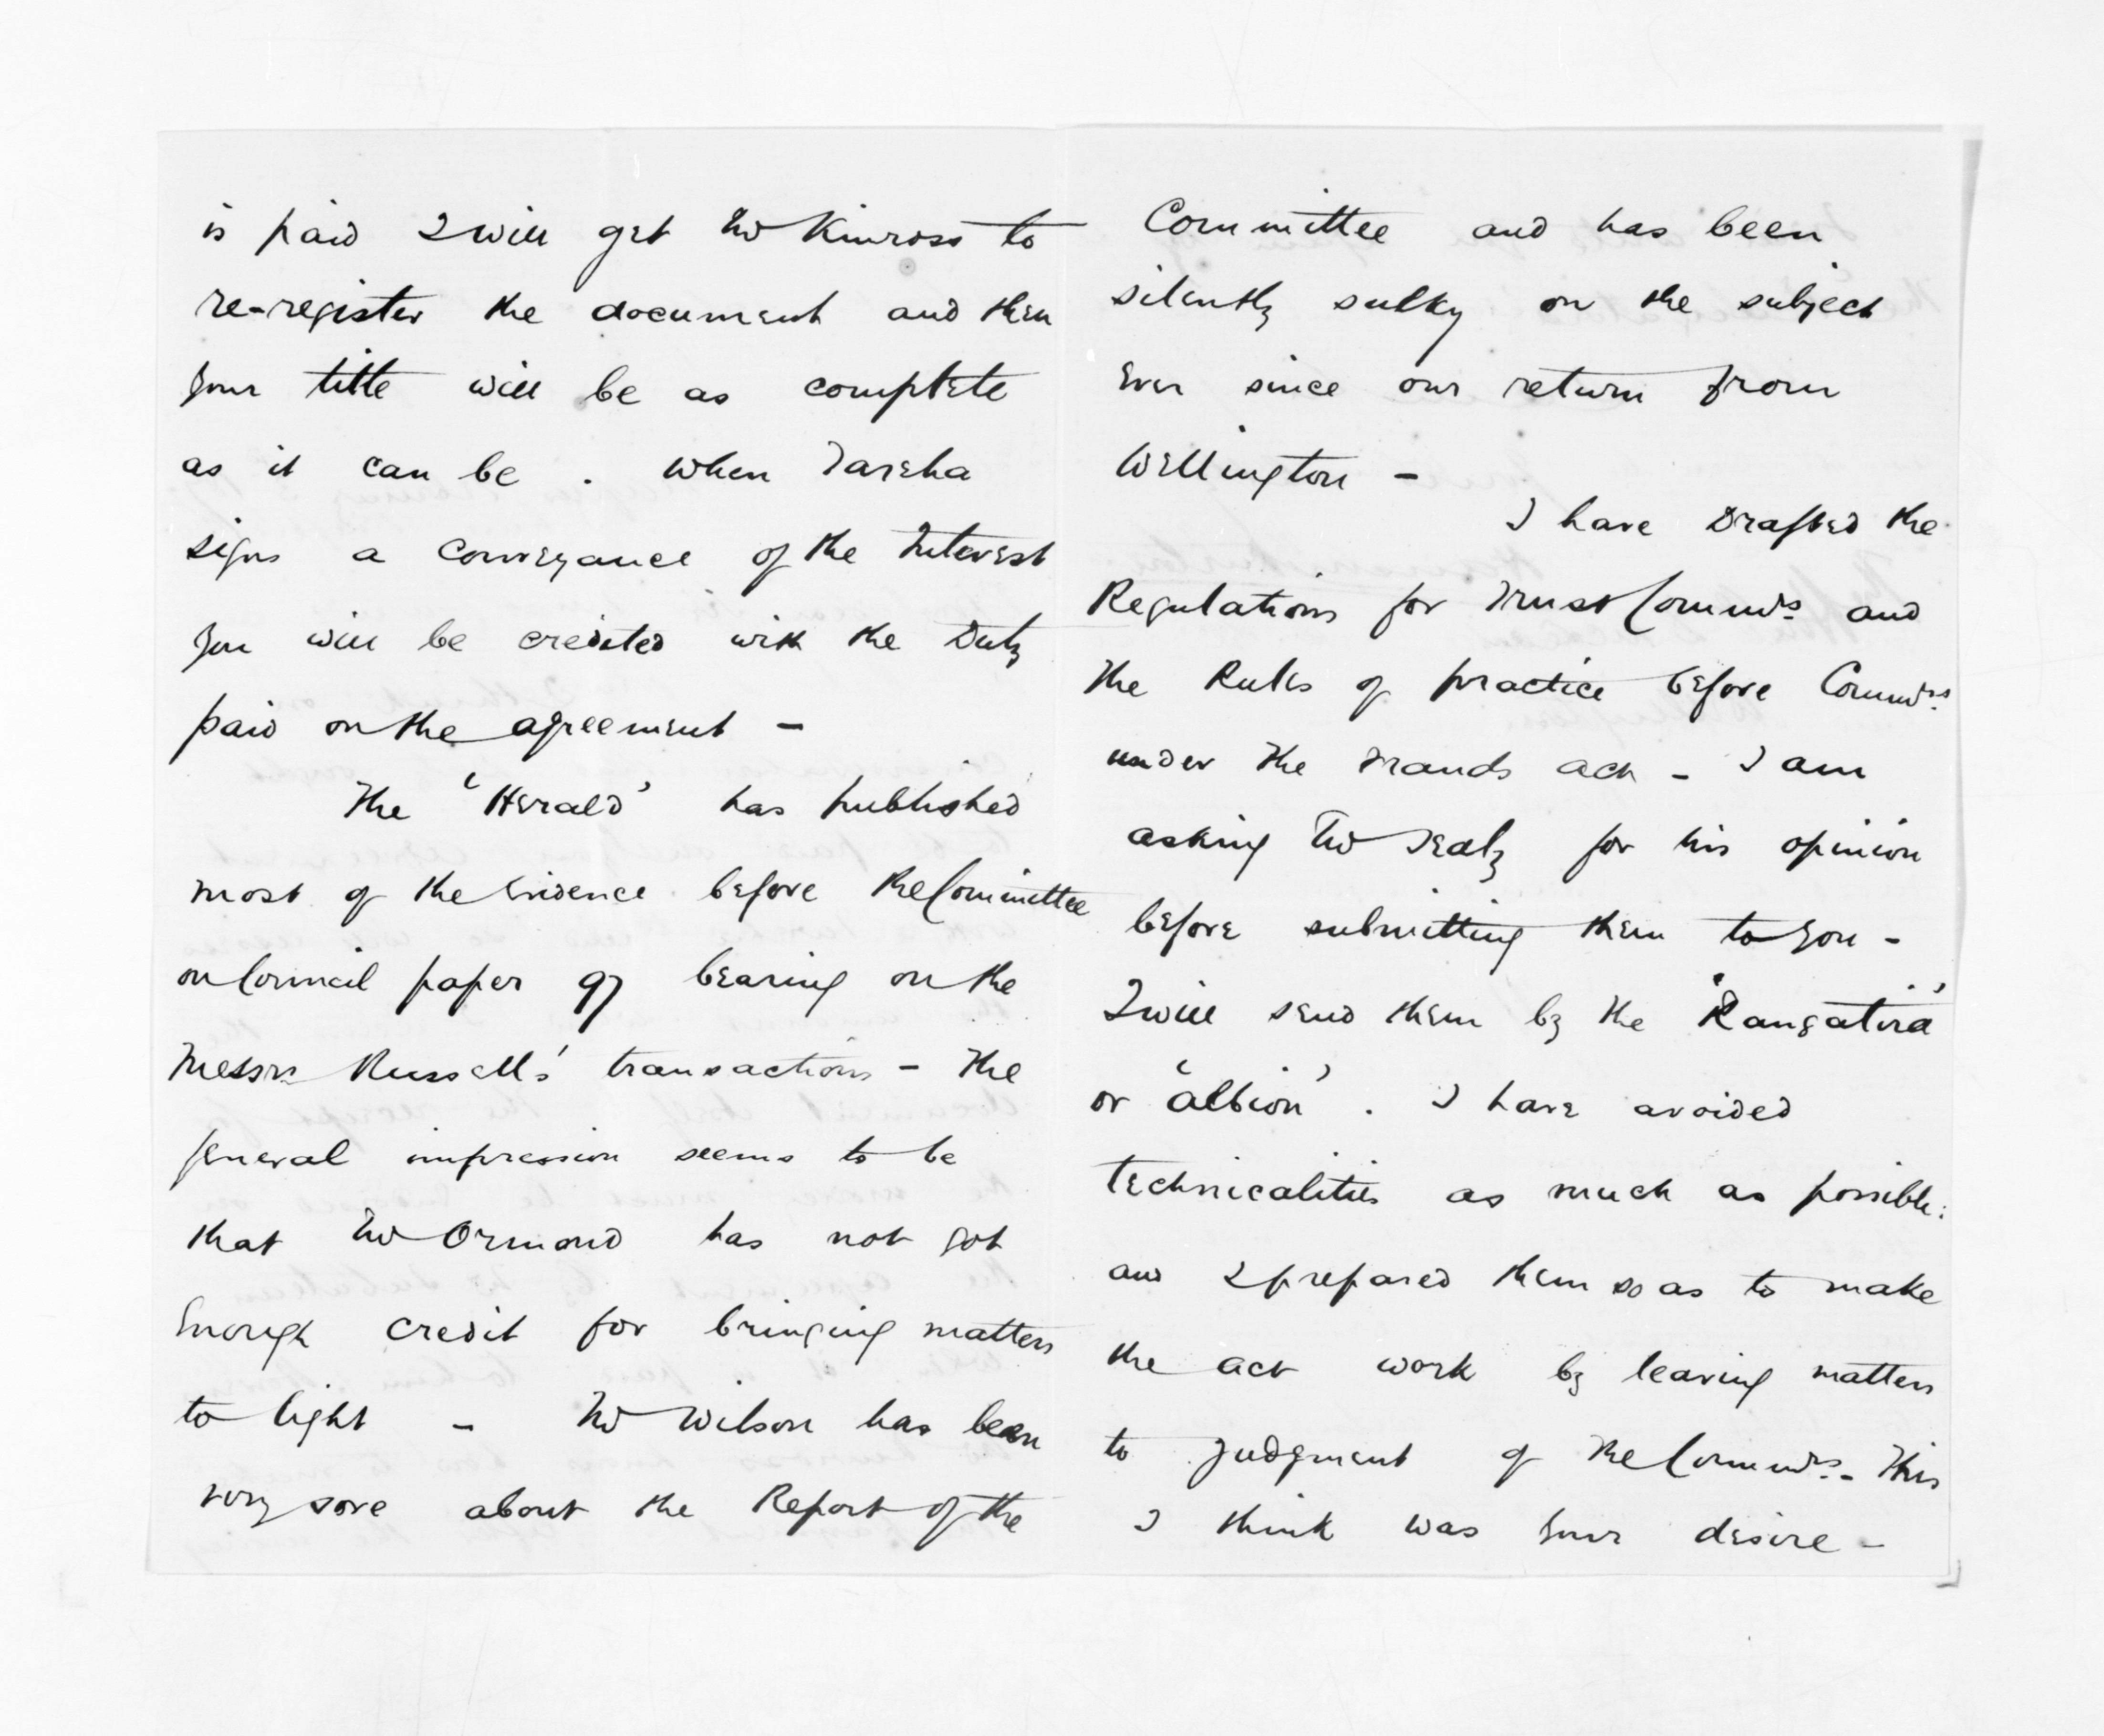 is paid I will get Mr Kinross to
re-register the document and then
your title will be as complete
as it can be . When Tareha
signs a conveyance of the Interest
you will be credited with the Duty
paid on the agreement -
The 'Herald' has published
most of the Evidence before the Committee
on Council paper 97 bearing on the
Messrs Russell's' transactions - The
general impression seems to be
that Mr Ormond has not got
Enough credit for bringing matters
to light - Mr Wilson has been
very sore about the Report of the
Committee and has been
silently sulky on the subject
Ever since our return from
Wellington -
I have Drafted the
Regulations for Trust Commrs. and
the Rules of practice before Commrs.
under the Frauds act - I am
asking Mr Sealy for his opinion
before submitting them to you -
I will send them by the 'Rangatira'
or 'Albion' . I have avoided
technicalities as much as possible:
and I prepared them so as to make
the act work by leaving matters
to judgment of the Commrs. - This
I think was your desire -